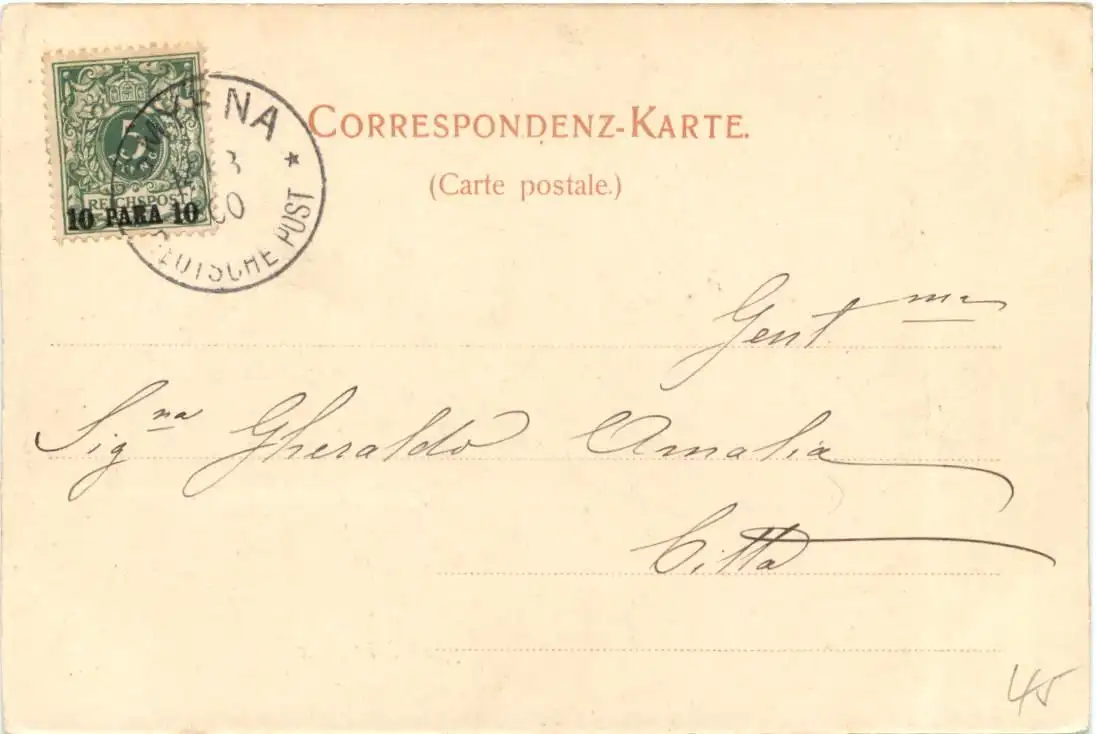 SMYRNA
5
PFENNIG
REICHSPOST
10 PARA 10
DEUTSCHE POST
CORRESPONDENZ-KARTE.
(Carte postale.)
Gent ma
Sig na Gheraldo Amalia
Citta
45